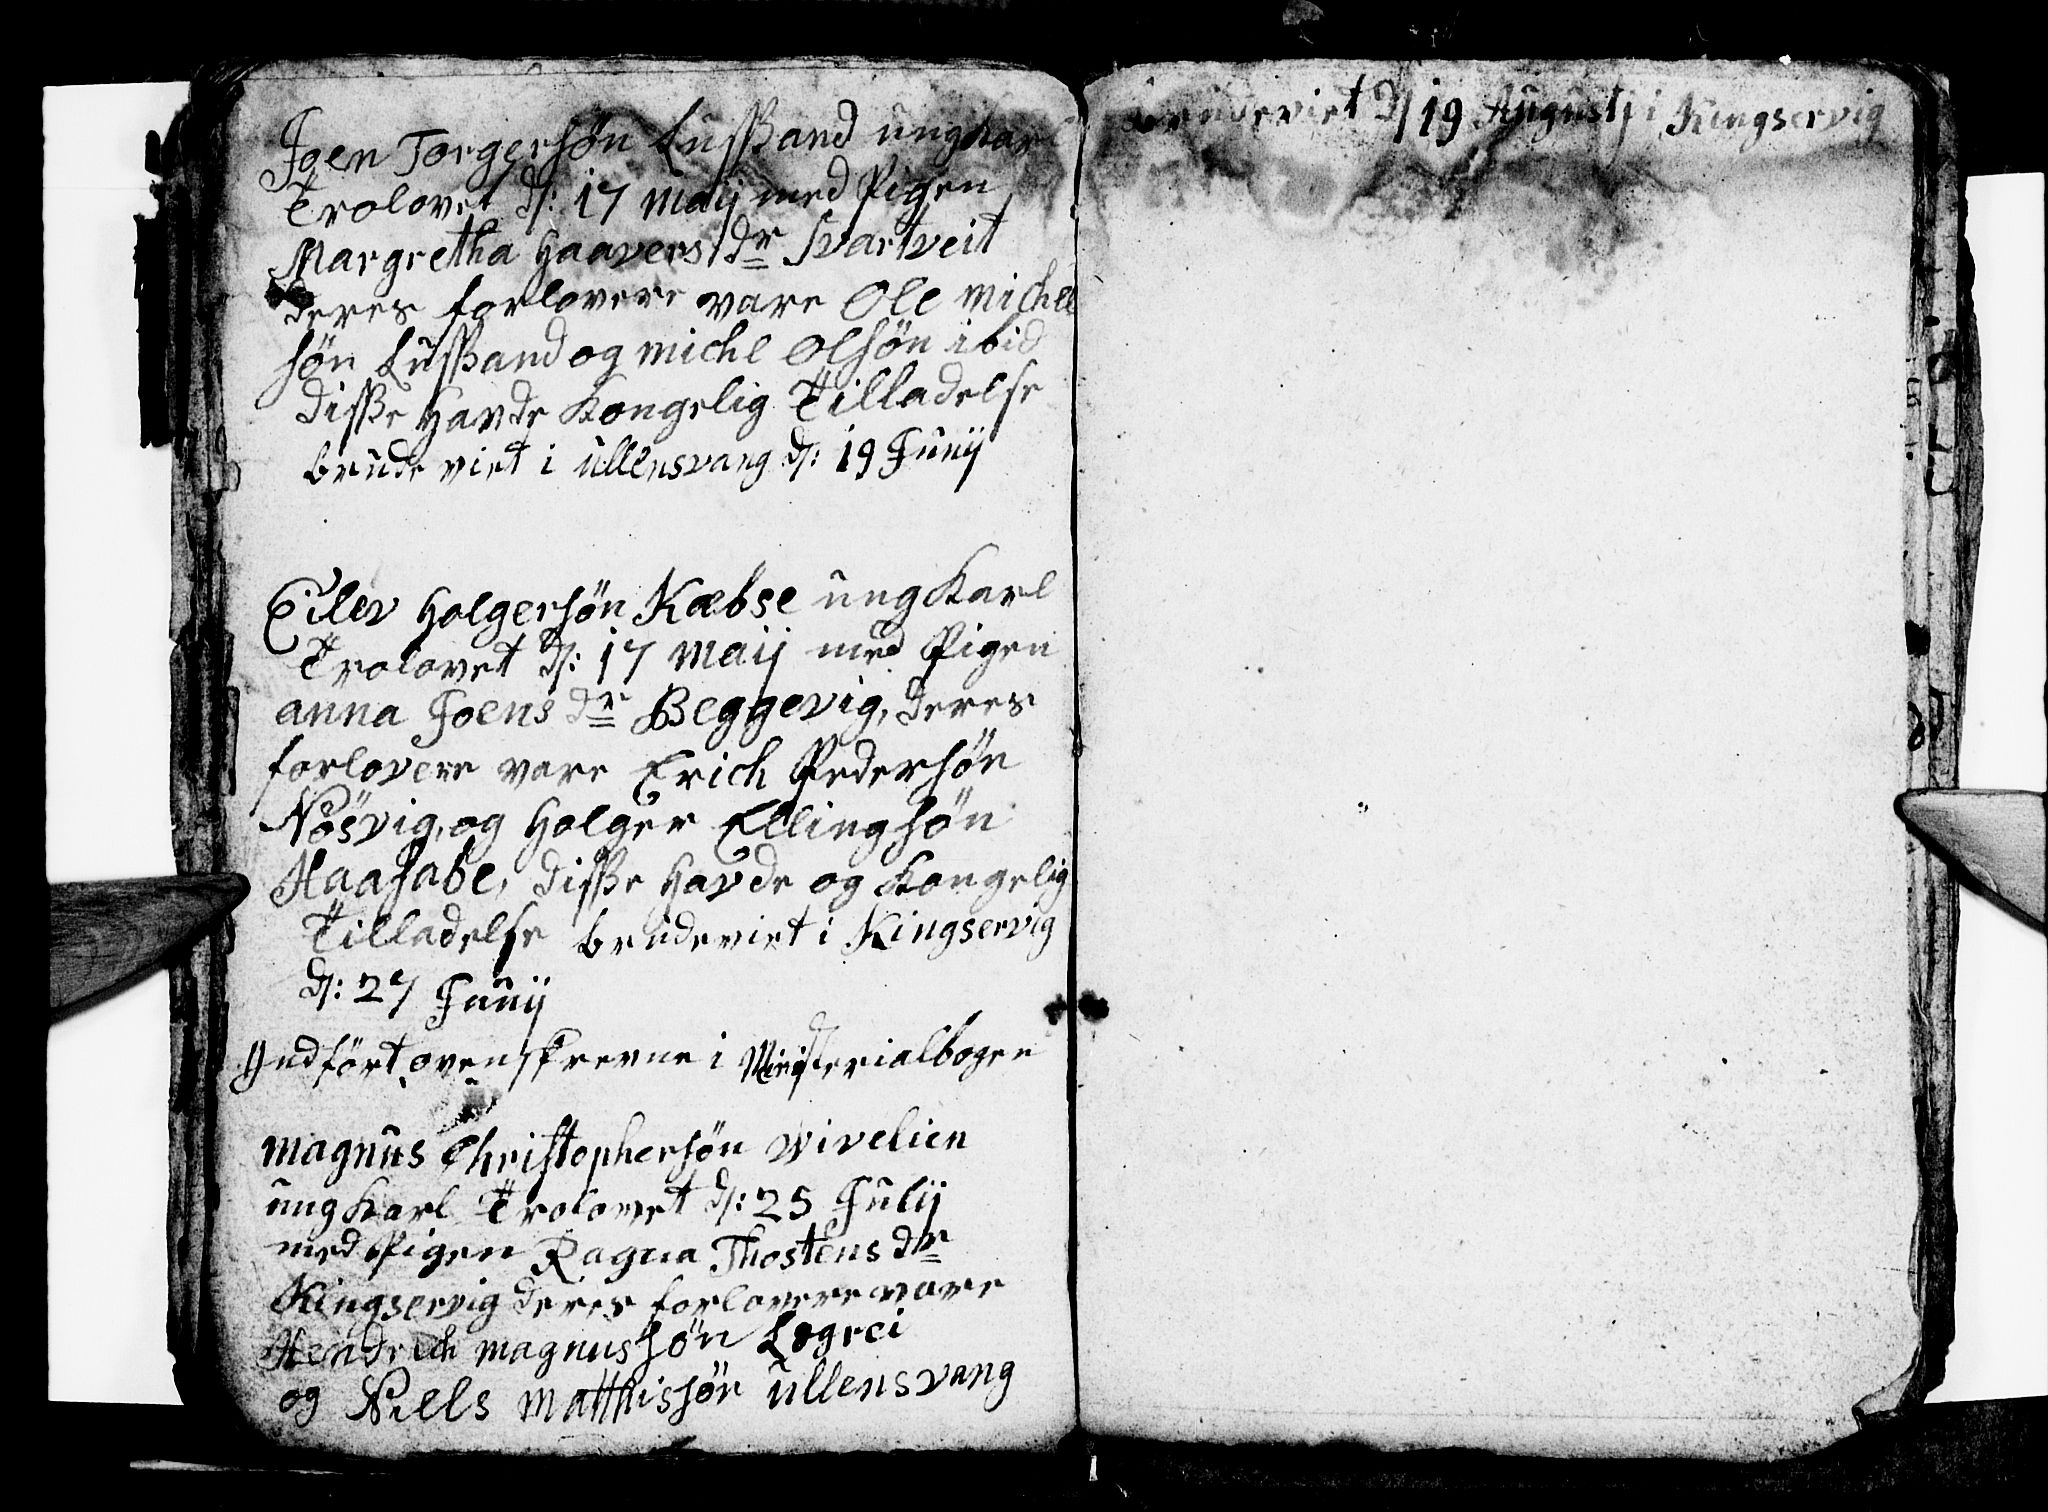 Joen Torgersøn Lussand ungkarl
Trolovet d: 17 Maij med Pigen
Margretha Haavers dr Svartveit
deres forlovere vare Ole michel
søn Lussand og michl Olsøn ibid
disse havde Kongelig Tilladelse
brudeviet i ullensvang d: 19 Junij
Eilev Holgersøn Kæbse ungkarl
Trolovet d: 17 Maij med Pigen
anna Joens dr Beggevig, deres
forlovere vare Erich Pedersøn
Nösvig, og Holger Ellingsøn
Haasabe, disse havde og Kongelig
Tilladelse brudeviet i Kingservig
d: 27 Junij
Indført ovenskrevne i Ministerialbogen
magnus Christophersøn Wivelien
ungkarl Trolovet d: 25 Julij
med Pigen Ragna Thostens dr
Kingservig deres forlovere vare
Hendrich magnussøn Logrei
og Niels Matthissøn ullensvang
brudeviet d/19 Augustj i Kingservig